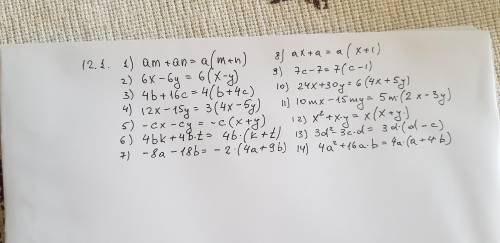 12.1. 1) am + an = a(m+n)
2) 6x - 6y = 6(x-y)
3) 4b + 16c = 4(b+4c)
4) 12x - 15y = 3(4x-5y)
5) -cx - cy = -c(x+y)
6) 4bk + 4b·t = 4b·(k+t)
7) -8a - 18b = -2·(4a+9b)
8) ax + a = a(x+1)
9) 7c - 7 = 7(c-1)
10) 24x + 30y = 6(4x+5y)
11) 10mx - 15my = 5m(2x-3y)
12) x² + x·y = x(x+y)
13) 3d² - 3c·d = 3d·(d-c)
14) 4a² + 16a·b = 4a·(a+4b)